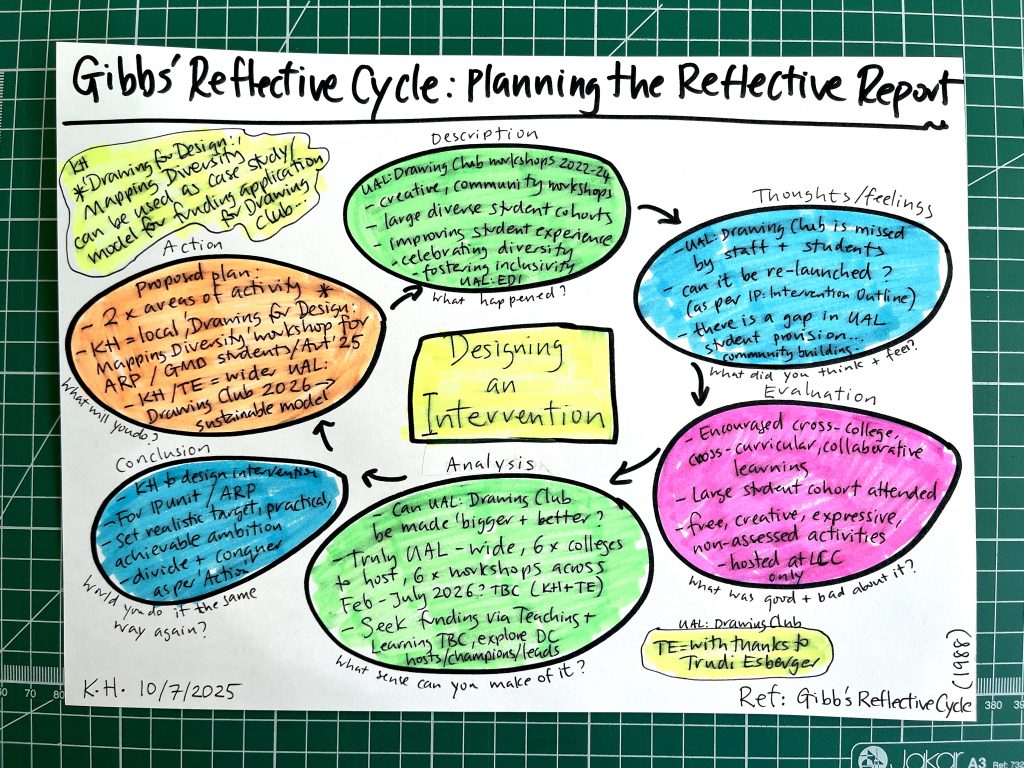 Gibbs' Reflective Cycle: Planning the Reflective Report
KH
*'Drawing for Design:,
Mapping Diversity
can be used as case study/
model for funding application
for Drawing
Club...
Description
UAL: Drawing Club workshops 2022-24
- creative, community workshops
- large diverse student cohorts
- improving student experience
- celebrating diversity
- fostering inclusivity
UAL: EDI
What happened?
Thoughts/feelings
- UAL: Drawing Club is missed
by staff + students
- can it be re-launched?
(as per IP: Intervention Outline)
- there is a gap in UAL
student provision...
community building.
What did you think + feel?
Evaluation
- Encouraged cross-college,
cross-curricular, collaborative
learning
- Large student cohort attended
- free, creative, expressive,
non-assessed activities
- hosted at LCC
only
What was good + bad about it?
Analysis
- Can UAL: Drawing Club
be made 'bigger + better?
- Truly UAL-wide, 6x colleges
to host, 6x workshops across
Feb-July 2026? TBC (KH+TE)
- Seek funding via Teaching +
Learning TBC, explore DC
hosts/champions/leads
What sense can you make of it?
Conclusion
- KH to design intervention
- For IP unit / ARP
- Set realistic target, practical,
achievable ambition
- divide + conquer
as per 'Action'
Would you do it the same
way again?
Action
Proposed plan:
- 2 x areas of activity *
- KH = local 'Drawing for Design:
Mapping Diversity' workshop for
ARP / GMD students/Aut '25
- KH/TE = wider UAL:
Drawing Club 2026 →
sustainable model
What will you do?
Designing
an
Intervention
UAL: Drawing Club
TE = with thanks to
Trudi Esberger
K.H. 10/7/2025
Ref: Gibb's Reflective Cycle
(1988)
60 70 80
380 39
Jakar A3 Ref: 732